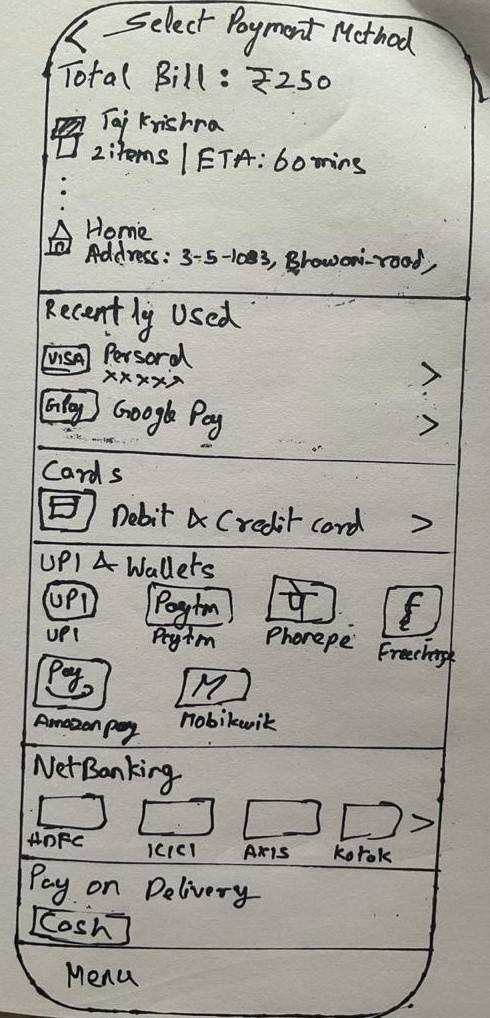 < Select Payment Method
Total Bill : ₹250
Taj Krishna
2 items | ETA: 60 mins
Home
Address: 3-5-1093, Bhawani-road,
Recently Used
VISA Personal >
xxxxx
GPay Google Pay >
Cards
Debit & Credit card >
UPI & Wallets
UPI Paytm
UPI Paytm Phonepe Freecharge
Pay M
Amazon pay Mobikwik
NetBanking
>
HDFC ICICI AXIS Kotak
Pay on Delivery
Cash
Menu